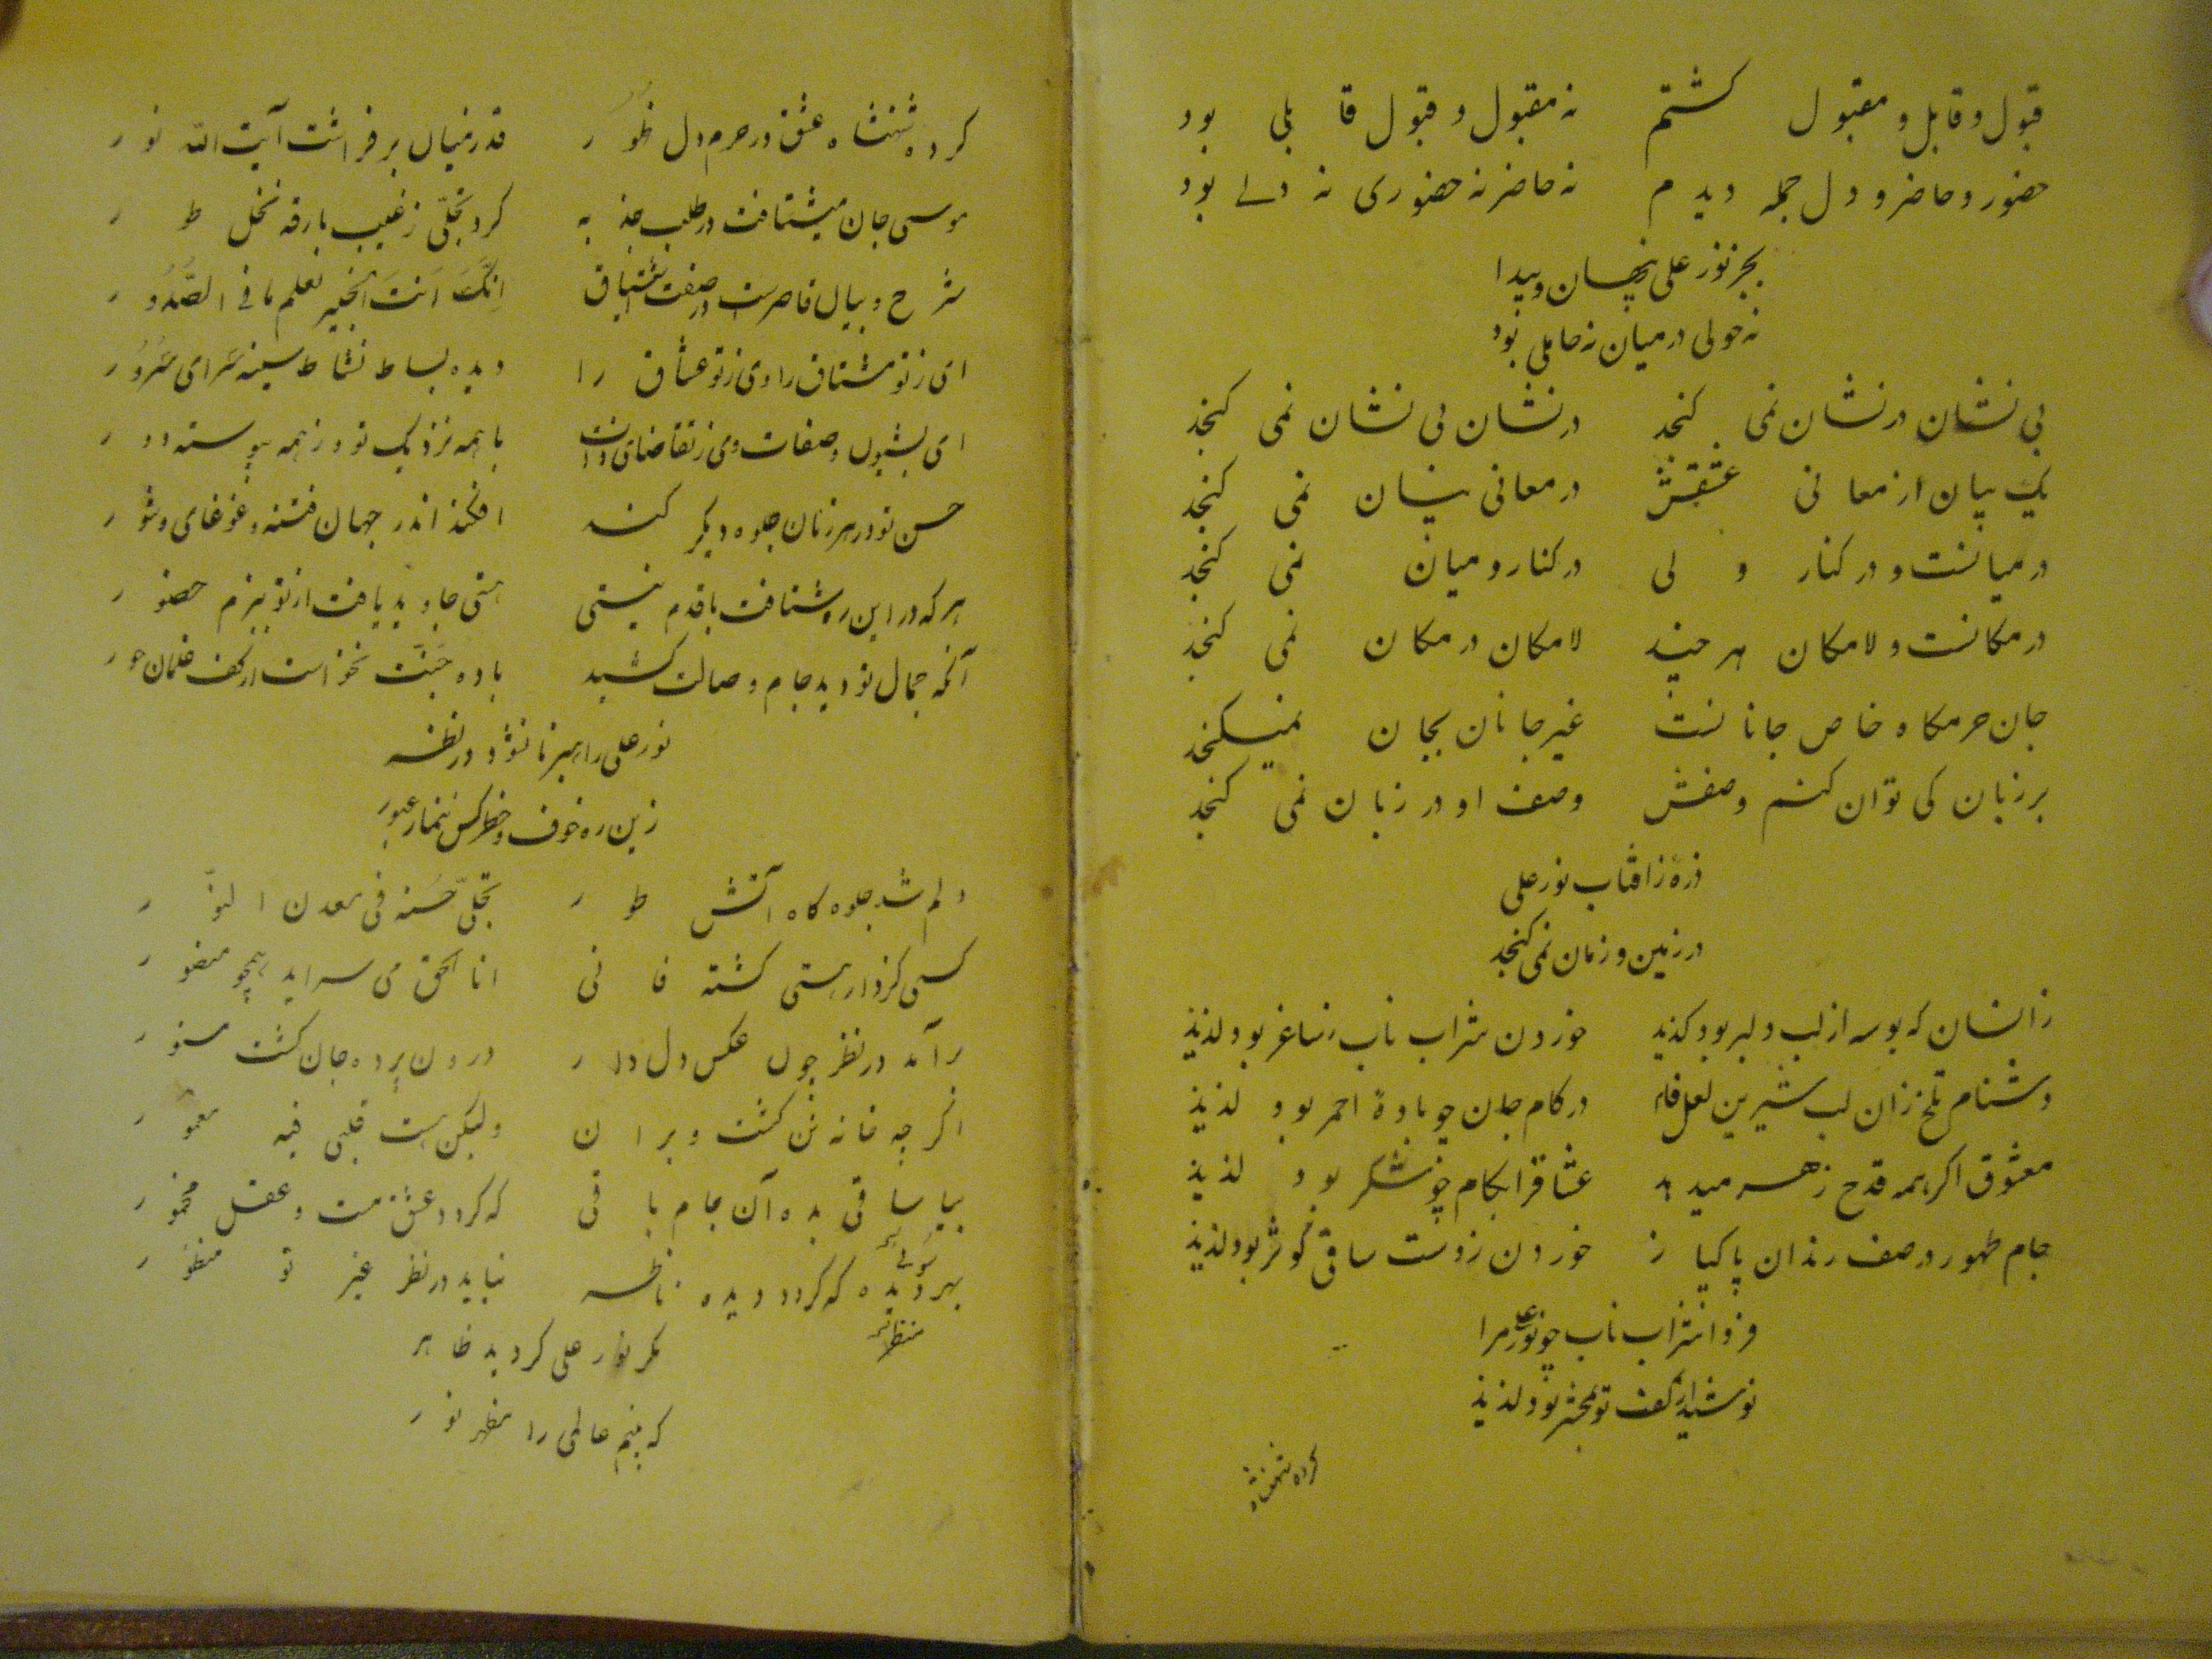 قبول و قابل و مقبول کشتم نه مقبول و قبول قابلی بود
حضور و حاضر و دل جمله دیدم نه حاضر نه حضوری نه دلے بود
بجز نور علی پنهان و پیدا
نه حولی در میان نه حاملی بود
بی نشان در نشان نمی کنجد در نشان بی نشان نمی کنجد
یک بیان از معانی عشقش در معانی بیان نمی کنجد
در میانست و در کنار ولی در کنار و میان نمی کنجد
در مکانست و لامکان هر چند لامکان در مکان نمی کنجد
جان حرمکاه خاص جانانست غیر جانان بجان نمیکنجد
بر زبان کی توان کنم وصفش وصف او در زبان نمی کنجد
ذرهٔ ز افتاب نور علی
در زمین و زمان نمی کنجد
زانسان که بوسه از لب دلبر بود لذیذ خوردن شراب ناب ز ساغر بود لذیذ
دشنام تلخ زان لب شیرین لعل فام در کام جان چو بادهٔ احمر بود لذیذ
معشوق اکر همه قدح زهر میدهد عشاقرا بکام چو شکر بود لذیذ
جام طهور در صف رندان پاکباز خوردن ز دست ساقی کوثر بود لذیذ
فردا شراب ناب چو نور علی مرا
نوشیدن از کف تو بمحشر بود لذیذ
کرده شهنشاه
کرده شهنشاه عشق در حرم دل ظهور قد ز میان بر فراشت آیت الله نور
موسی جان میشتافت در طلب جذبه کرد تجلّی ز غیب بارقه نخل طور
شرح و بیان قاصرست در صفت اشتیاق انّکَ اَنتَ الخبیر تعلم ما فی الصّدور
ای ز تو مشتاق را وی ز تو عشاق را دیده بساط نشاط سینه سرای سرور
ای بشیون و صفات وی ز تقاضای ذات با همه نزدیک تو وز همه پیوسته دور
حسن تو در هر زمان جلوه دیکر کند افکند اندر جهان فتنه و غوغای و شور
هر که در این ره شتافت با قدم نیستی هستی جاوید یافت از تو ببزم حضور
آنکه جمال تو دید جام وصالت کشید باده جنّت نخواست از کف غلمان حور
نور علی راهبر تا نشود در نظر
زین ره خوف و خطر کس ننماید عبور
دلم شد جلوه کاه آتش طور تجلّی حُسنه فی معدن النّور
کسی کز دار هستی کشته فانی انا الحق می سراید همچو منصور
بر آمد در نظر چون عکس دلدار درون پرده جان کشت مستور
اکر چه خانه تن کشت ویران ولیکن بیت قلبی فیه معمور
بیا ساقی بده آن جام باقی که کردد عشق مست و عقل مخمور
بهر دیده که کردد دیده ناظر نیاید در نظر غیر تو منظور
مکر نور علی کردید ظاهر
که بینم عالمی را مظهر نور